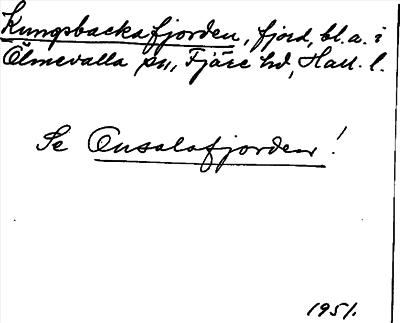 Kungsbackafjorden, fjord, bl. a. i
Ölmevalla sn, Fjäre hd, Hall. l.
Se Onsalafjorden!
1951.